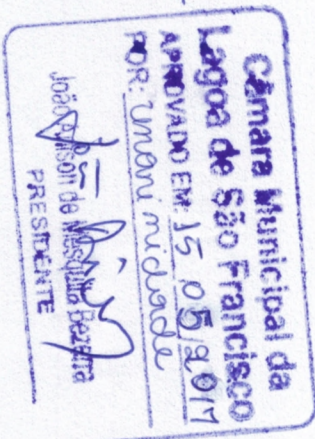 Câmara Municipal da
Lagoa de São Francisco
APROVADO EM: 15 05/2017
POR: unanimidade
João de Mesquita Bezerra
PRESIDENTE